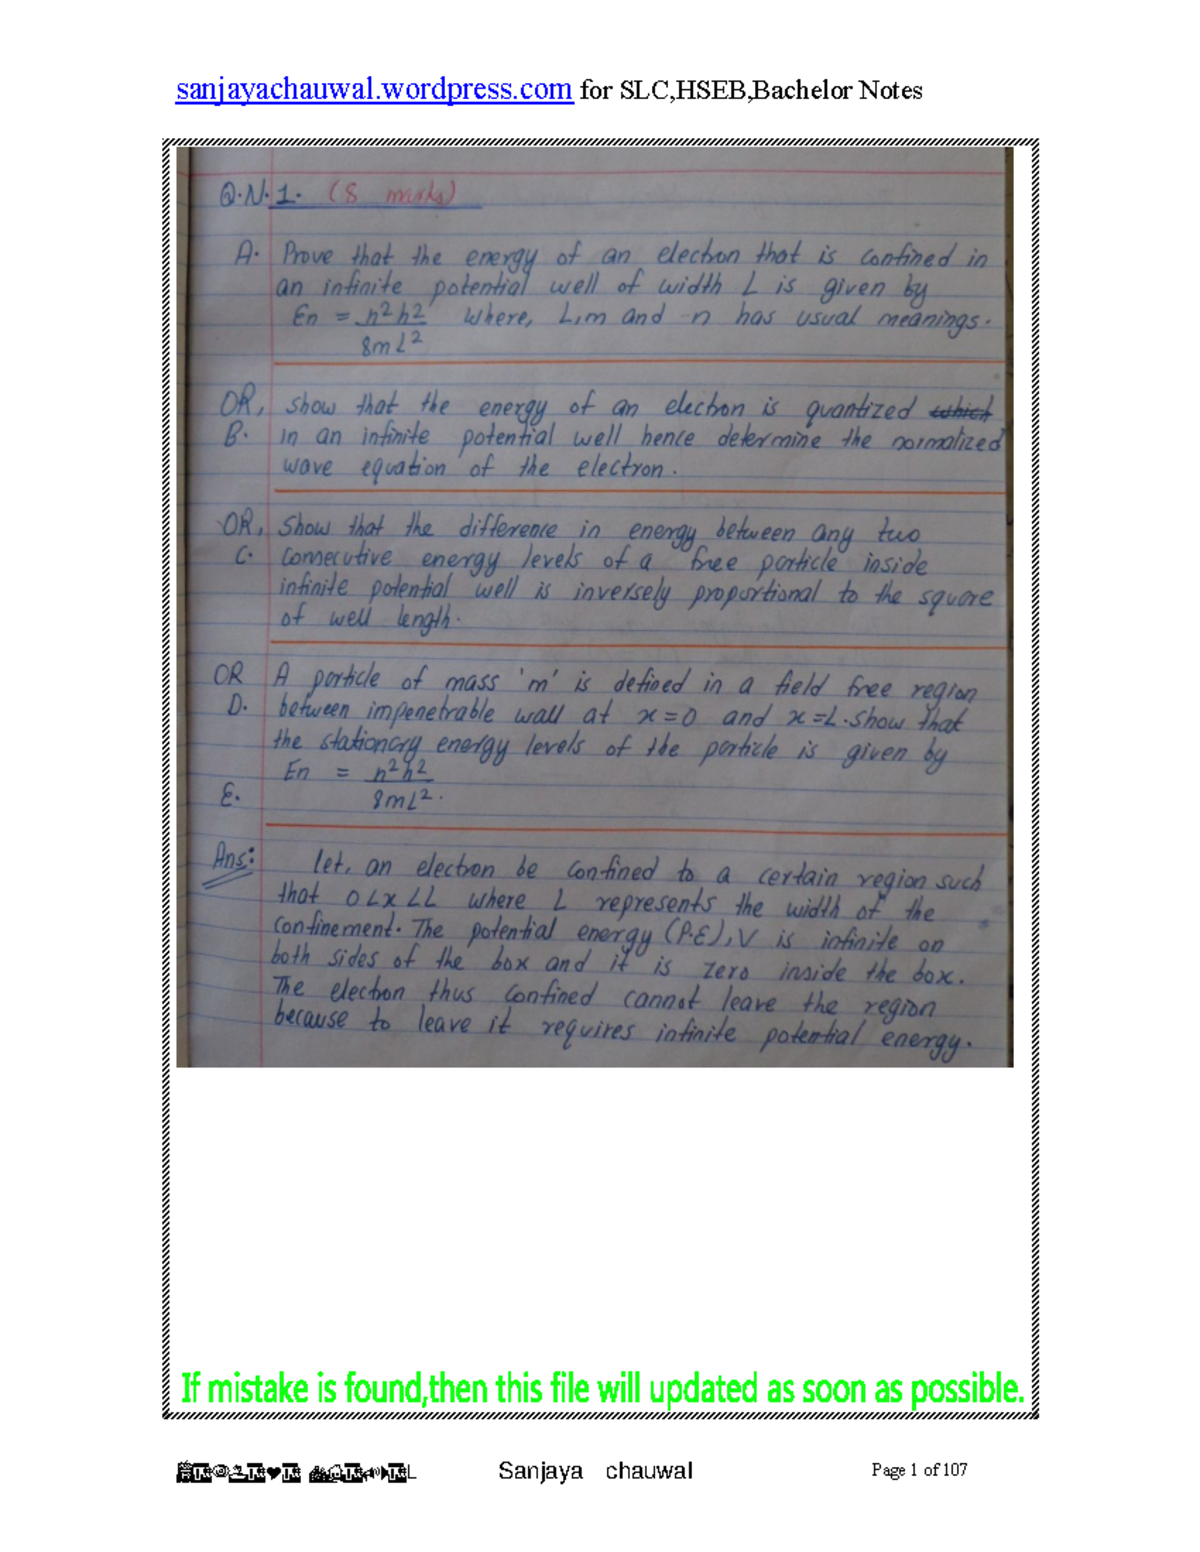 sanjayachauwal.wordpress.com for SLC,HSEB,Bachelor Notes
Q.N.1. (8 marks)
A. Prove that the energy of an electron that is confined in
an infinite potential well of width L is given by
En = n²h² where, L,m and n has usual meanings.
8mL²
OR, show that the energy of an electron is quantized which
B. in an infinite potential well hence determine the normalized
wave equation of the electron.
OR, Show that the difference in energy between any two
C. consecutive energy levels of a free particle inside
infinite potential well is inversely proportional to the square
of well length.
OR A particle of mass 'm' is defined in a field free region
D. between impenetrable wall at x=0 and x=L. Show that
the stationary energy levels of the particle is given by
En = n²h²
E. 8mL².
Ans: Let, an electron be confined to a certain region such
that 0<x<L where L represents the width of the
confinement. The potential energy (P.E), V is infinite on
both sides of the box and it is zero inside the box.
The electron thus confined cannot leave the region
because to leave it requires infinite potential energy.
If mistake is found,then this file will updated as soon as possible.
Sanjaya chauwal Page 1 of 107